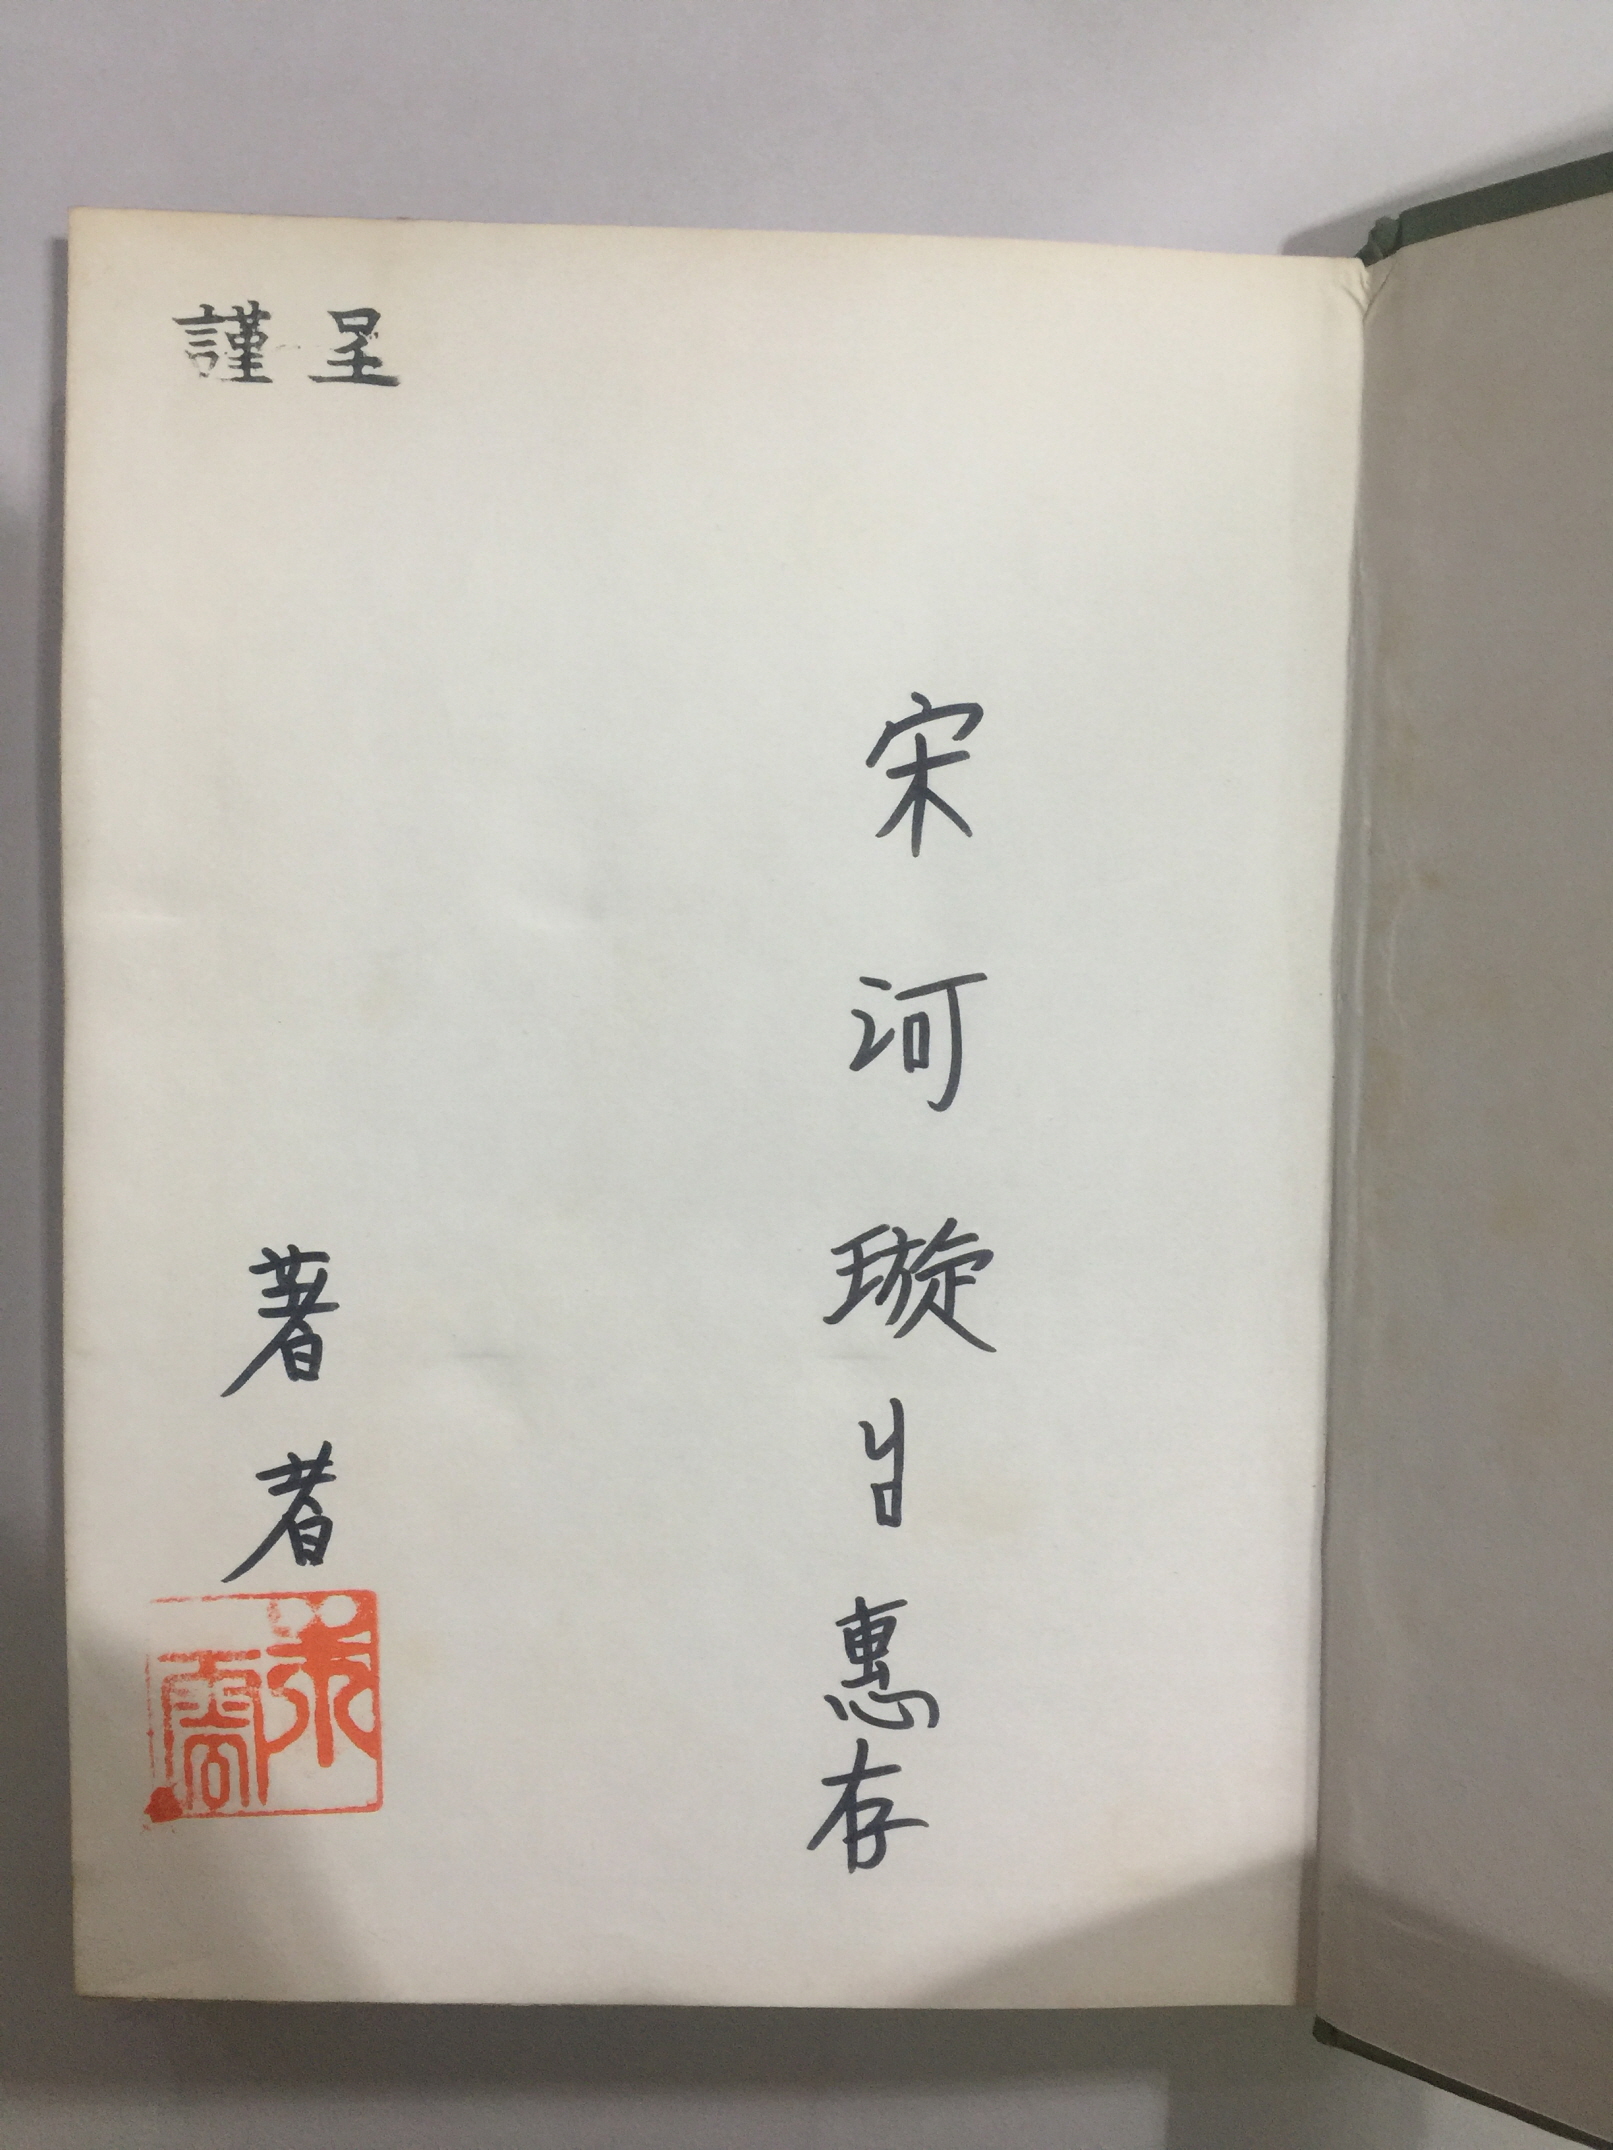 謹呈
宋河璇님惠存
著者